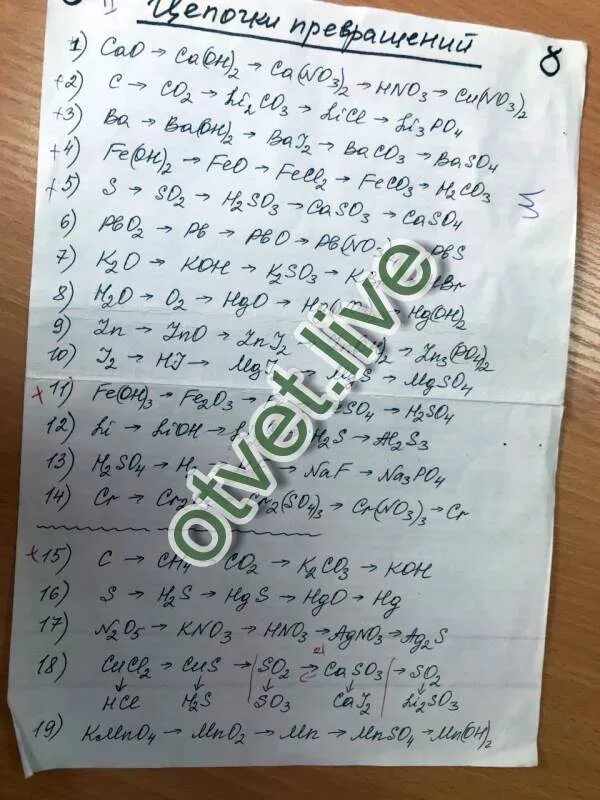 Цепочки превращений
8
1) CaO → Ca(OH)2 → Ca(NO3)2 → HNO3 → Cu(NO3)2
+2) C → CO2 → Li2CO3 → LiCl → Li3PO4
+3) Ba → Ba(OH)2 → BaI2 → BaCO3 → BaSO4
+4) Fe(OH)2 → FeO → FeCl2 → FeCO3 → H2CO3
+5) S → SO2 → H2SO3 → CaSO3 → CaSO4
6) PbO2 → Pb → PbO → Pb(NO3 PbS
7) K2O → KOH → K2SO3 → K Br
8) H2O → O2 → HgO → Hg(OH)2
9) Zn → ZnO → ZnI2 )2 → Zn3(PO4)2
10) I2 → HI → MgI S → MgSO4
x 11) Fe(OH)3 → Fe2O3 → SO4 → H2SO4
12) Li → LiOH → H2S → Al2S3
13) H2SO4 → H2 → NaF → Na3PO4
14) Cr → Cr2 Cr2(SO4)3 → Cr(NO3)3 → Cr
+15) C → CH4 CO2 → K2CO3 → KOH
16) S → H2S → HgS → HgO → Hg
17) N2O5 → KNO3 → HNO3 → AgNO3 → Ag2S
18) CuCl2 → CuS → SO2 → CaSO3 → SO2
↓ ↓ ↓ ↓ ↓
HCl H2S SO3 CaI2 Li2SO3
19) KMnO4 → MnO2 → Mn → MnSO4 → Mn(OH)2
otvet.live